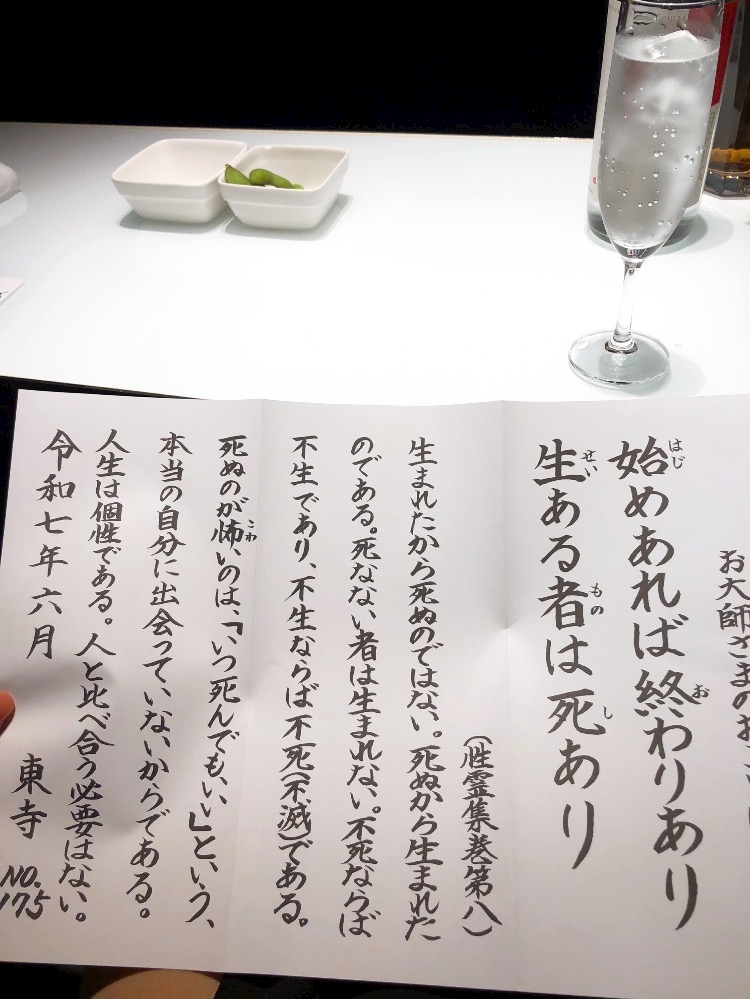 お大師さまのお
始めあれば終わりあり
生ある者は死あり
(性霊集巻第八)
生まれたから死ぬのではない。死ぬから生まれた
のである。死なない者は生まれない。不死ならば
不生であり、不生ならば不死(不滅)である。
死ぬのが怖いのは、「いつ死んでもいい」という、
本当の自分に出会っていないからである。
人生は個性である。人と比べ合う必要はない。
令和七年六月 東寺 NO.175